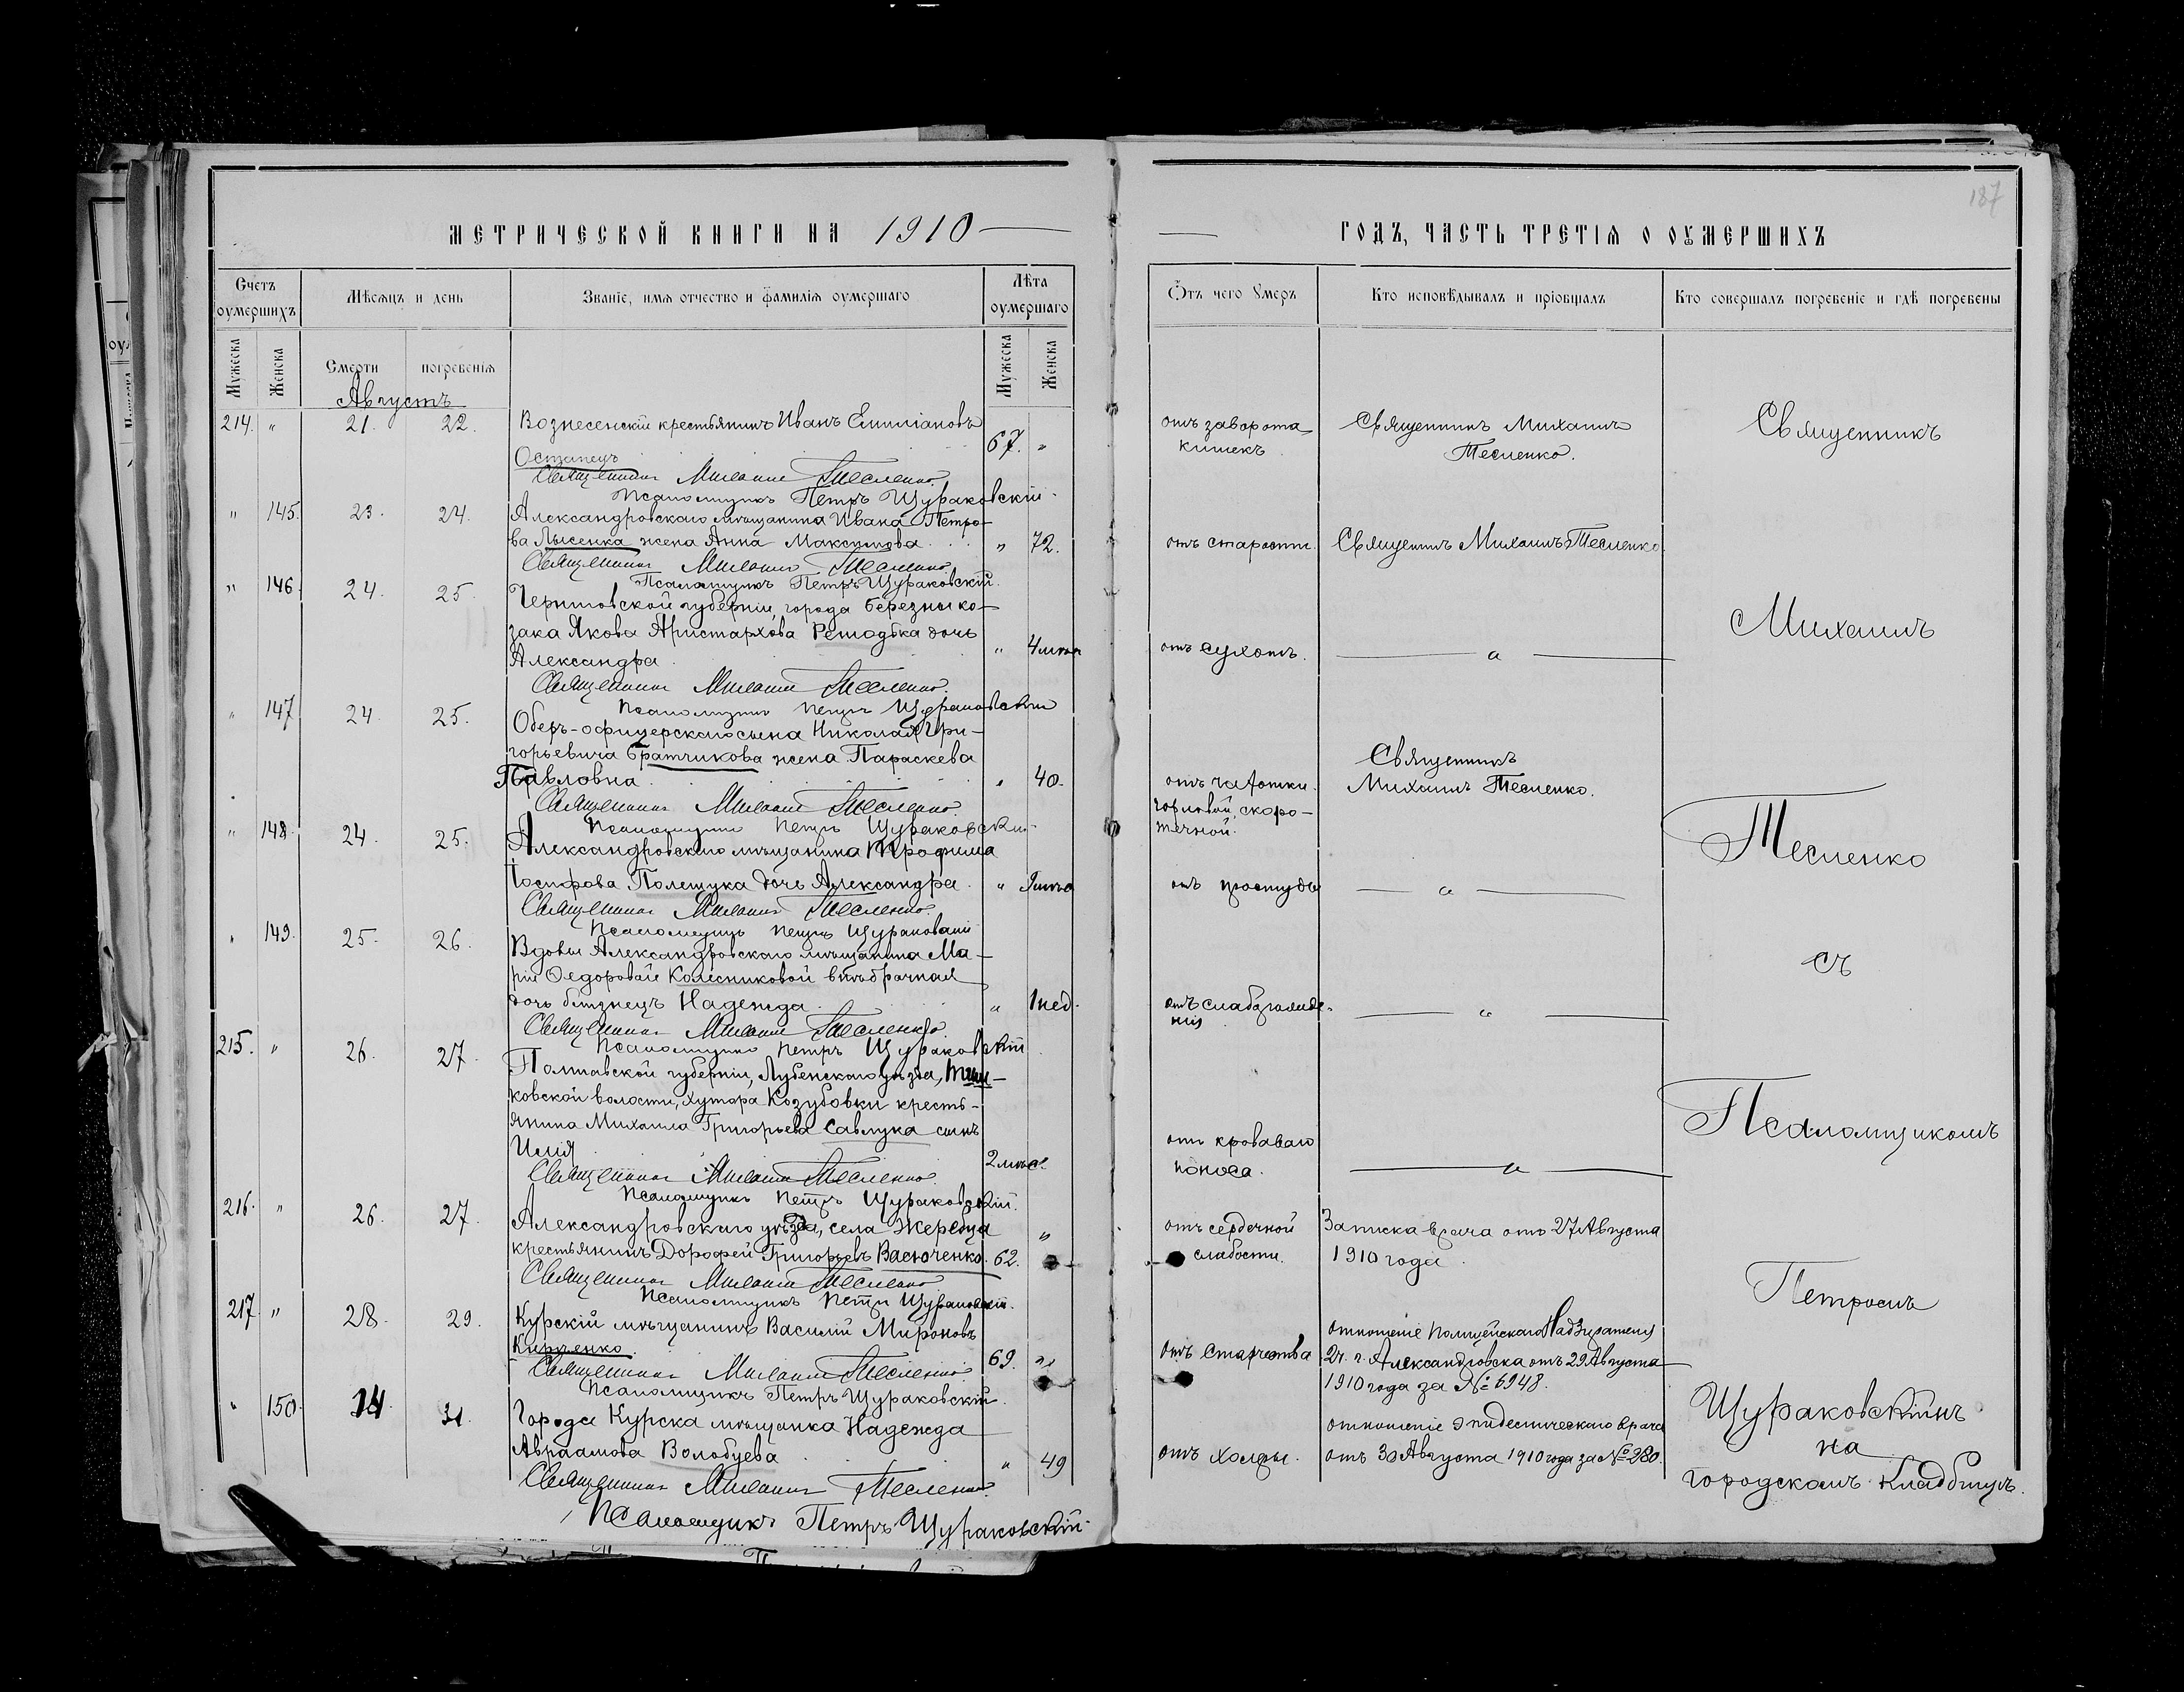 МЕТРИЧЕСКОЙ КНИГИ НА 1910
Счетъ оумершихъ
Мѣсяцъ и день
Званіе, имя отчество и фамилія оумершаго
Лѣта оумершаго
Мужеска
Женска
Смерти
погребенія
Мужеска
Женска
Августъ
214. " 21. 22. Вознесенскій крестьянинъ Иванъ Емиліановъ
Остапецъ 67. "
Священникъ Михаилъ Тесленко
Псаломщикъ Петръ Щураковскій
" 145. 23. 24. Александровскаго мѣщанина Ивана Петро-
ва Лысенка жена Анна Максимова " 72.
Священникъ Михаилъ Тесленко
Псаломщикъ Петръ Щураковскій
" 146. 24. 25. Черниговской губерніи, города Березны ко-
зака Якова Аристархова дочь
Александра " 4 мѣс.
Священникъ Михаилъ Тесленко
Псаломщикъ Петръ Щураковскій
" 147 24. 25. Оберъ-офицерскаго сына Николая Гри-
горьевича Братчикова жена Параскева
Павловна " 40.
Священникъ Михаилъ Тесленко
Псаломщикъ Петръ Щураковскій
" 148. 24. 25. Александровскаго мѣщанина Трофима
Іосифова Полещука дочь Александра "
Священникъ Михаилъ Тесленко
Псаломщикъ Петръ Щураковскій
" 149. 25. 26. Вдовы Александровскаго мѣщанина Ма-
ріи Ѳедоровой Колесниковой внѣбрачная
дочь близнецъ Надежда " 1 нед.
Священникъ Михаилъ Тесленко
Псаломщикъ Петръ Щураковскій
215. " 26. 27. Полтавской губерніи, Лубенскаго уѣзда,
ковской волости, хутора Козубовки кресть-
янина Михаила Григорьева Савлука сынъ
Илія 2 мѣс.
Священникъ Михаилъ Тесленко
Псаломщикъ Петръ Щураковскій
216. " 26. 27. Александровскаго уѣзда, села Жеребца "
крестьянинъ Дорофей Григорьевъ Васюченко. 62.
Священникъ Михаилъ Тесленко
Псаломщикъ Петръ Щураковскій
217. " 28. 29. Курскій мѣщанинъ Василій Мироновъ
69. "
Священникъ Михаилъ Тесленко
Псаломщикъ Петръ Щураковскій
" 150. 31. Города Курска мѣщанка Надежда
Авраамова Волобуева " 49
Священникъ Михаилъ Тесленко
Псаломщикъ Петръ Щураковскій
187
ГОДЪ, ЧАСТЬ ТРЕТІЯ О ОУМЕРШИХЪ
Ѿтъ чего умеръ
Кто исповѣдывалъ и пріобщалъ
Кто совершалъ погребеніе и гдѣ погребены
отъ заворота
кишекъ
Священникъ Михаилъ
Тесленко.
отъ старости. Священникъ Михаилъ Тесленко.
отъ сухотъ.
Священникъ
отъ чахотки Михаилъ Тесленко.
горловой, скоро-
течной.
отъ простуды
отъ слаборожде-
нія
отъ кроваваго
поноса.
отъ сердечной Записка врача отъ 27 Августа
слабости. 1910 года
Отношеніе Полицейскаго Надзирателя
отъ старчества 2 ч. г. Александровска отъ 29 Августа
1910 года за № 6948.
отношеніе эпидемическаго врача
отъ холеры. отъ 30 Августа 1910 года за № 280.
Священникъ
Михаилъ
Тесленко
съ
Псаломщикомъ
Петромъ
Щураковскимъ
на
городскомъ кладбищѣ.